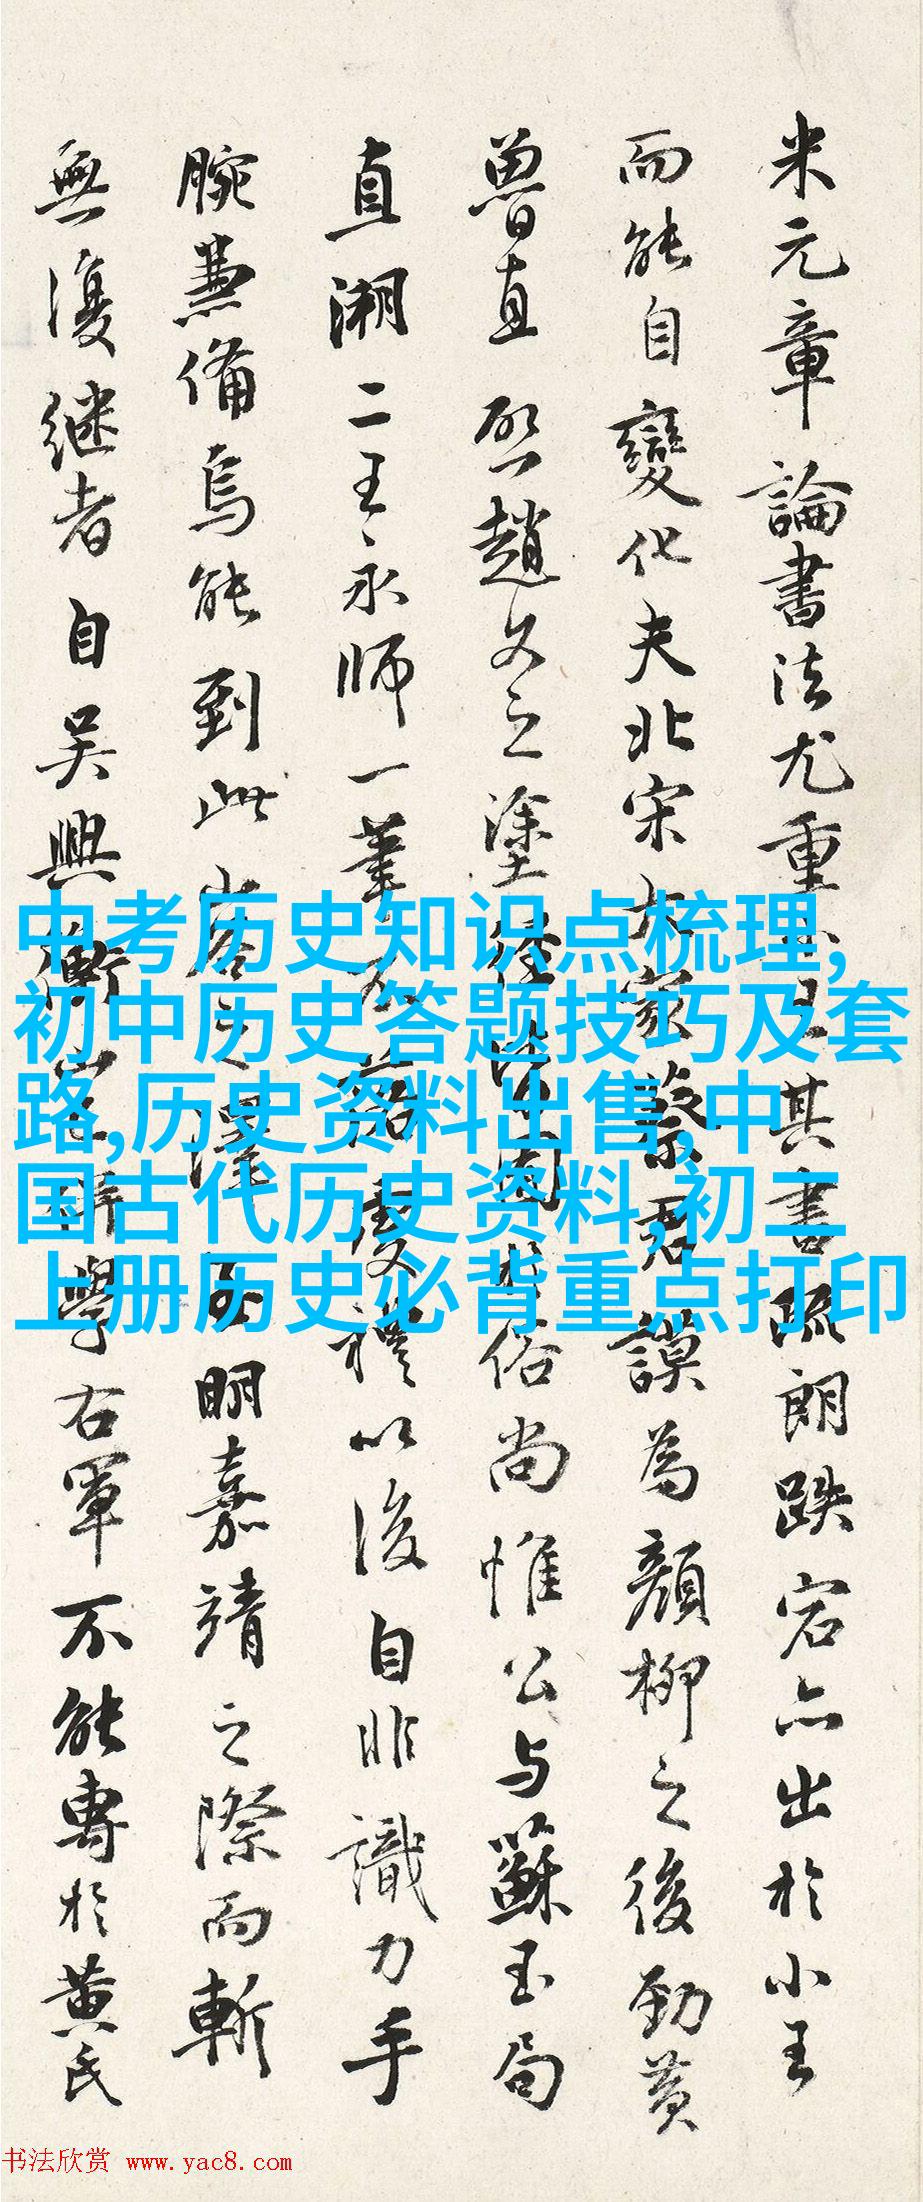 米元章論書法尤重
其書疏朗跌宕亦出於小王
而能自變化夫北宋
大家蔡君謨為顏柳之後勁黃
魯直
趙文之塗
俗尚惟公与蘇玉局
直溯二王永師一筆
以後自非識力手
腕兼備烏能到此
明嘉靖之際而斬
無復继者自吴興
學右軍不能專於黃氏
中考历史知识点梳理,
初中历史答题技巧及套
路,历史资料出售,中
国古代历史资料,初二
上册历史必背重点打印
书法欣赏 www.yac8.com